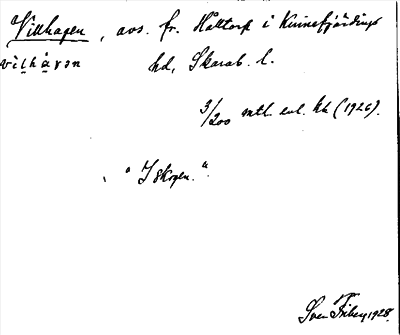 Villhagen, avs. fr. Hattorp i Kinnefjärdings
hd, Skarab. l.
3/200 mtl. enl. kk (1926).
"I skogen."
Sven Friberg 1928.